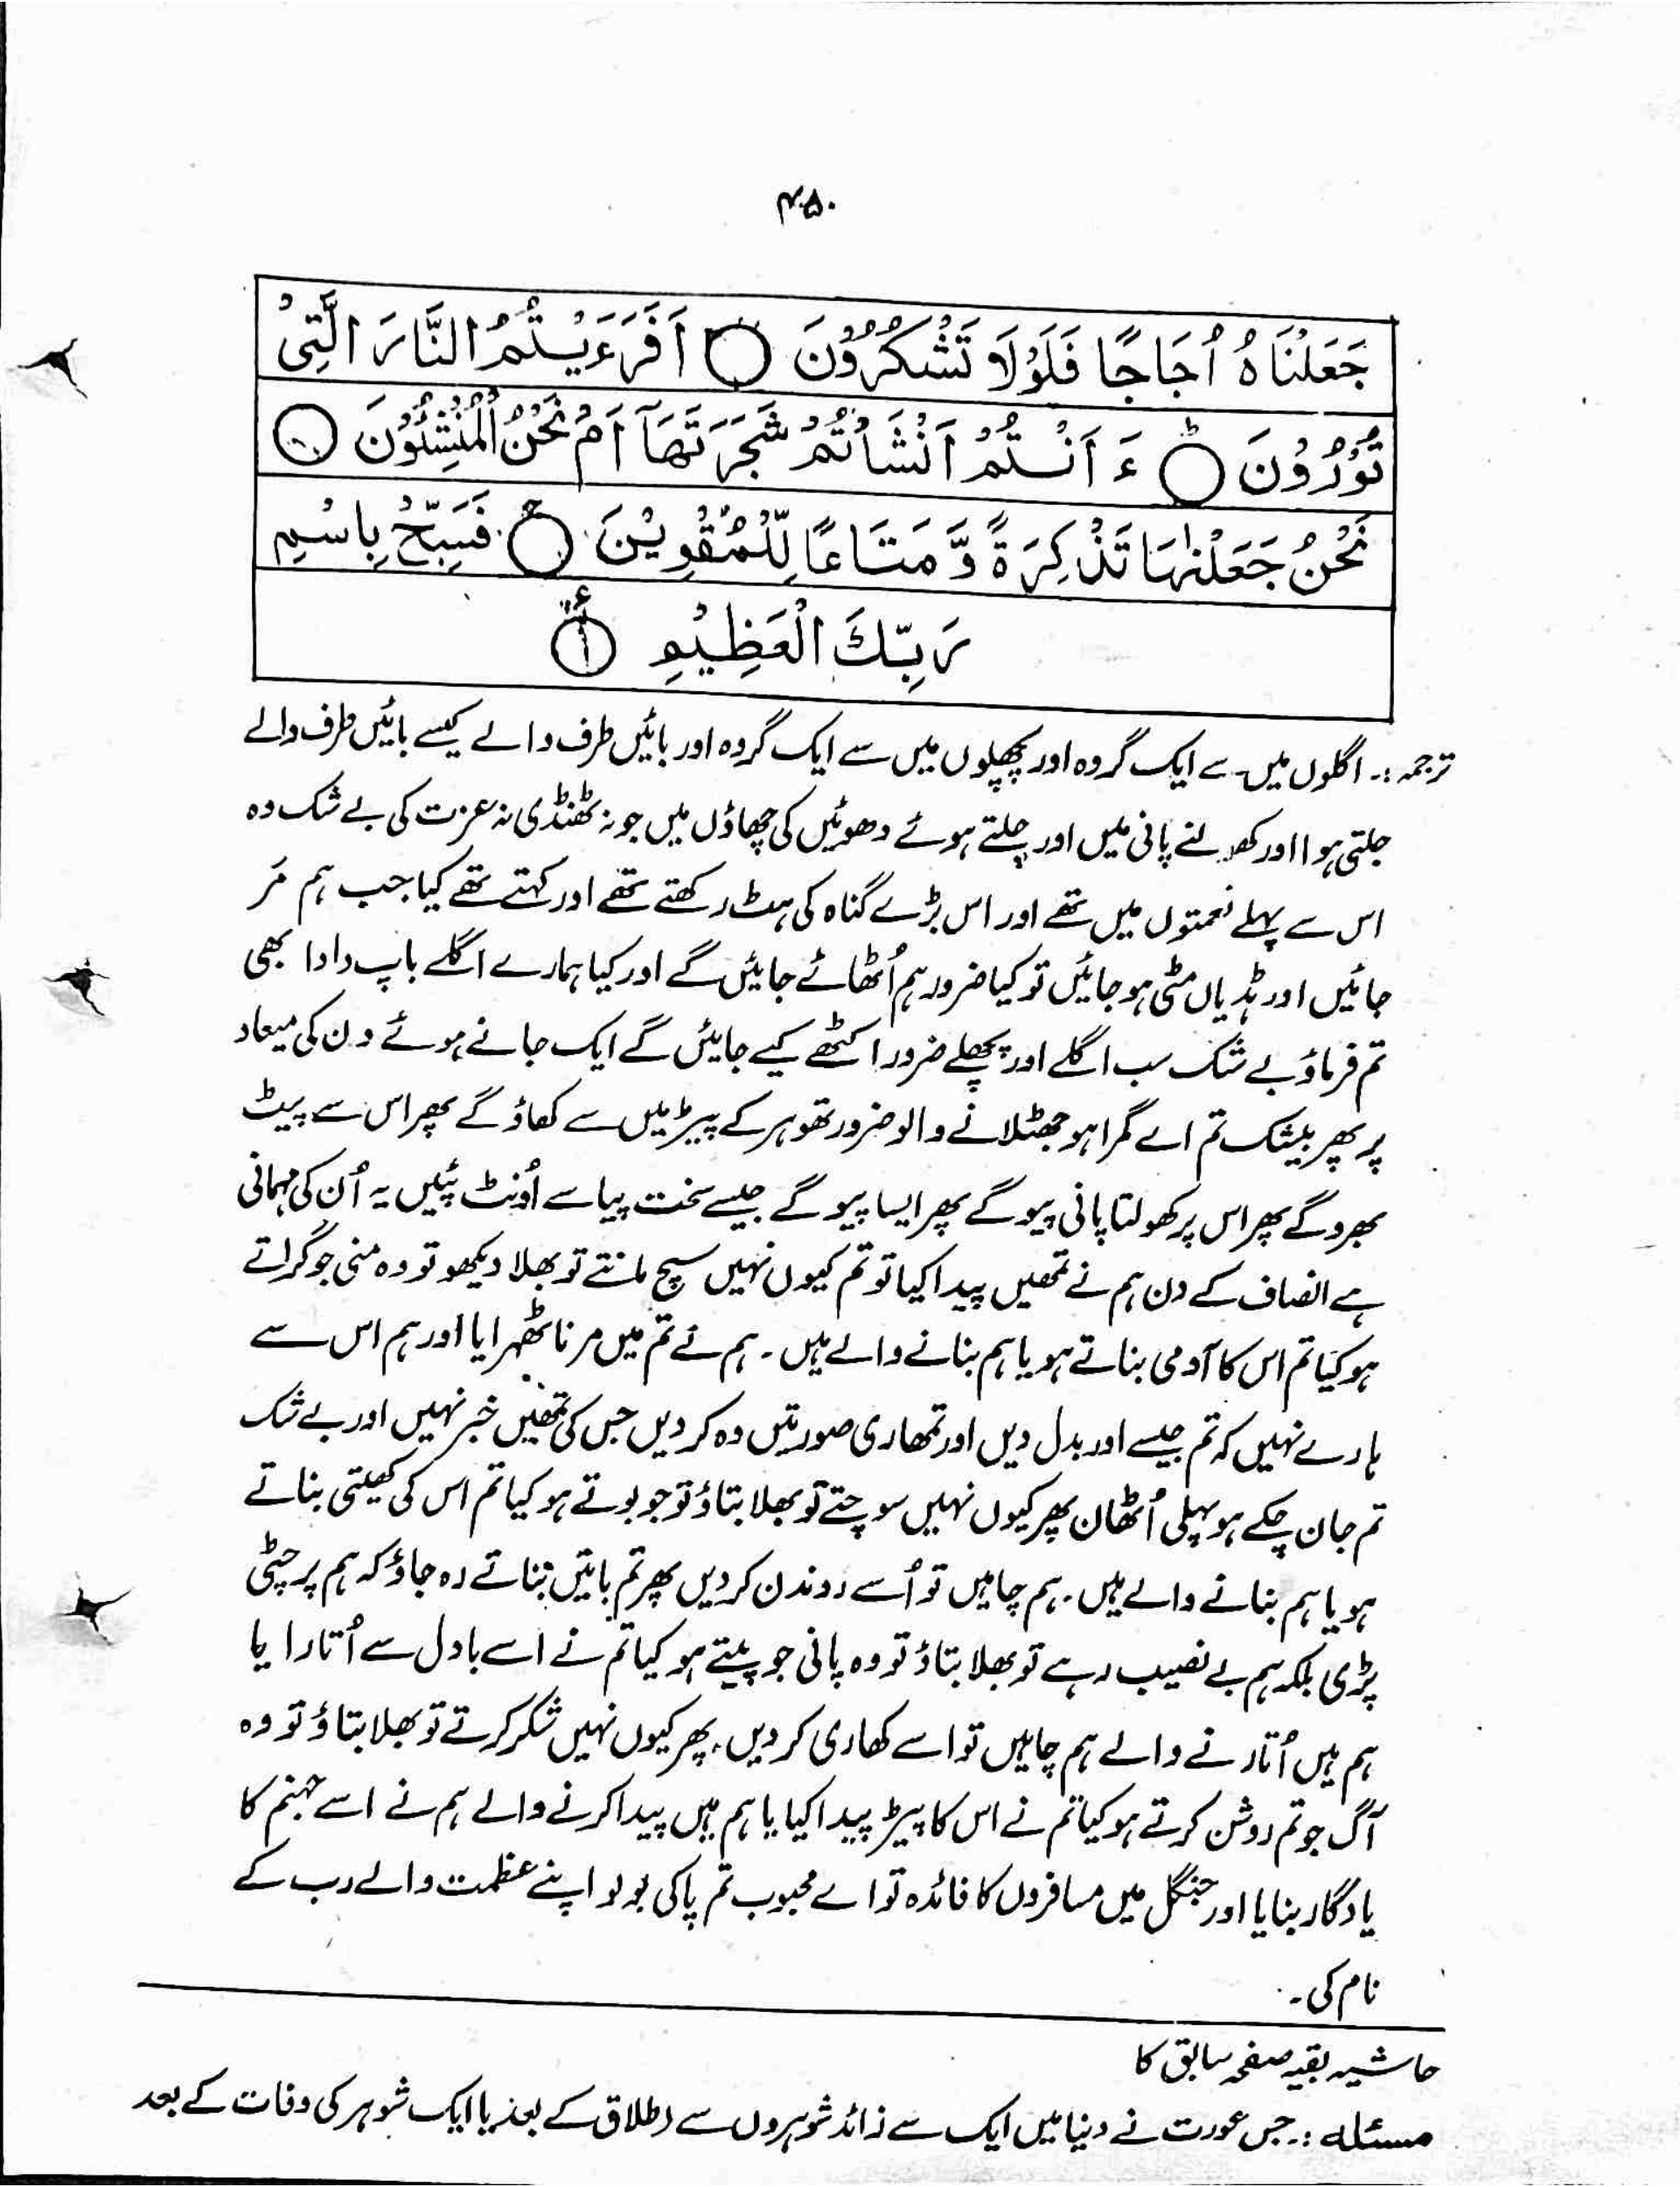 ۴۵۰
جَعَلْنَاهُ اُجَاجًا فَلَوْلَا تَشْكُرُوْنَ ۝ اَفَرَءَيْتُمُ النَّارَ الَّتِىْ
تُوْرُوْنَ ۝ ءَ اَنْتُمْ اَنْشَاْتُمْ شَجَرَتَهَآ اَمْ نَحْنُ الْمُنْشِئُوْنَ ۝
نَحْنُ جَعَلْنٰهَا تَذْكِرَةً وَّ مَتَاعًا لِّلْمُقْوِيْنَ ۝ فَسَبِّحْ بِاسْمِ
رَبِّكَ الْعَظِيْمِ ۝
ترجمہ :۔ اگلوں میں سے ایک گروہ اور پچھلوں میں سے ایک گروہ اور بائیں طرف والے کیسے بائیں طرف والے
جلتی ہوا اور کھولتے پانی میں اور جلتے ہوئے دھوئیں کی چھاؤں میں جو نہ ٹھنڈی نہ عزت کی بے شک وہ
اس سے پہلے نعمتوں میں تھے اور اس بڑے گناہ کی ہٹ رکھتے تھے اور کہتے تھے کیا جب ہم مَر
جائیں اور ہڈیاں مٹی ہو جائیں تو کیا ضرور ہم اُٹھائے جائیں گے اور کیا ہمارے اگلے باپ دادا بھی
تم فرماؤ بے شک سب اگلے اور پچھلے ضرور اکٹھے کیے جائیں گے ایک جانے ہوئے دن کی میعاد
پر پھر بیشک تم اے گمراہو جھٹلانے والو ضرور تھوہر کے پیڑ میں سے کھاؤ گے پھر اس سے پیٹ
بھرو گے پھر اس پر کھولتا پانی پیو گے پھر ایسا پیو گے جیسے سخت پیاسے اُونٹ پئیں یہ اُن کی مہمانی
ہے انصاف کے دن ہم نے تمھیں پیدا کیا تو تم کیوں نہیں سچ مانتے تو بھلا دیکھو تو وہ منی جو گراتے
ہو کیا تم اس کا آدمی بناتے ہو یا ہم بنانے والے ہیں ۔ ہم نے تم میں مرنا ٹھہرایا اور ہم اس سے
ہارے نہیں کہ تم جیسے اور بدل دیں اور تمھاری صورتیں وہ کر دیں جس کی تمھیں خبر نہیں اور بے شک
تم جان چکے ہو پہلی اُٹھان پھر کیوں نہیں سوچتے تو بھلا بتاؤ تو جو بوتے ہو کیا تم اس کی کھیتی بناتے
ہو یا ہم بنانے والے ہیں ۔ ہم چاہیں تو اُسے روندن کر دیں پھر تم باتیں بناتے رہ جاؤ کہ ہم پر چٹی
پڑی بلکہ ہم بے نصیب رہے تو بھلا بتاؤ تو وہ پانی جو پیتے ہو کیا تم نے اسے بادل سے اُتارا یا
ہم ہیں اُتارنے والے ہم چاہیں تو اسے کھاری کر دیں، پھر کیوں نہیں شکر کرتے تو بھلا بتاؤ تو وہ
آگ جو تم روشن کرتے ہو کیا تم نے اس کا پیڑ پیدا کیا یا ہم ہیں پیدا کرنے والے ہم نے اسے جہنم کا
یادگار بنایا اور جنگل میں مسافروں کا فائدہ تو اے محبوب تم پاکی بولو اپنے عظمت والے رب کے
نام کی ۔
حاشیہ بقیہ صفحہ سابق کا
مسئلہ :۔ جس عورت نے دنیا میں ایک سے زائد شوہروں سے (طلاق کے بعد یا ایک شوہر کی وفات کے بعد